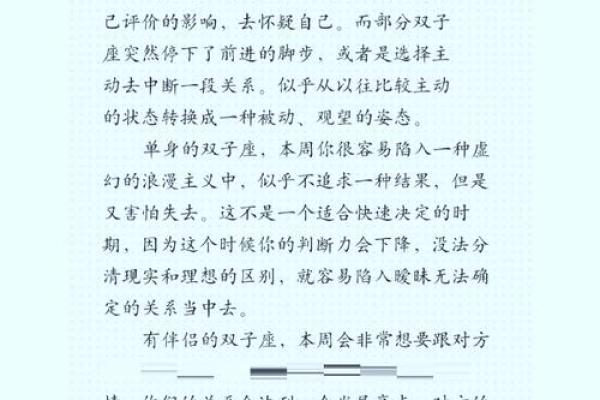 己评价的影响，去怀疑自己。而部分双子
座突然停下了前进的脚步，或者是选择主
动去中断一段关系。似乎从以往比较主动
的状态转换成一种被动、观望的姿态。
单身的双子座，本周你很容易陷入一种虚
幻的浪漫主义中，似乎不追求一种结果，但是
又害怕失去。这不是一个适合快速决定的时
期，因为这个时候你的判断力会下降，没法分
清现实和理想的区别，就容易陷入暧昧无法确
定的关系当中去。
有伴侣的双子座，本周会非常想要跟对方